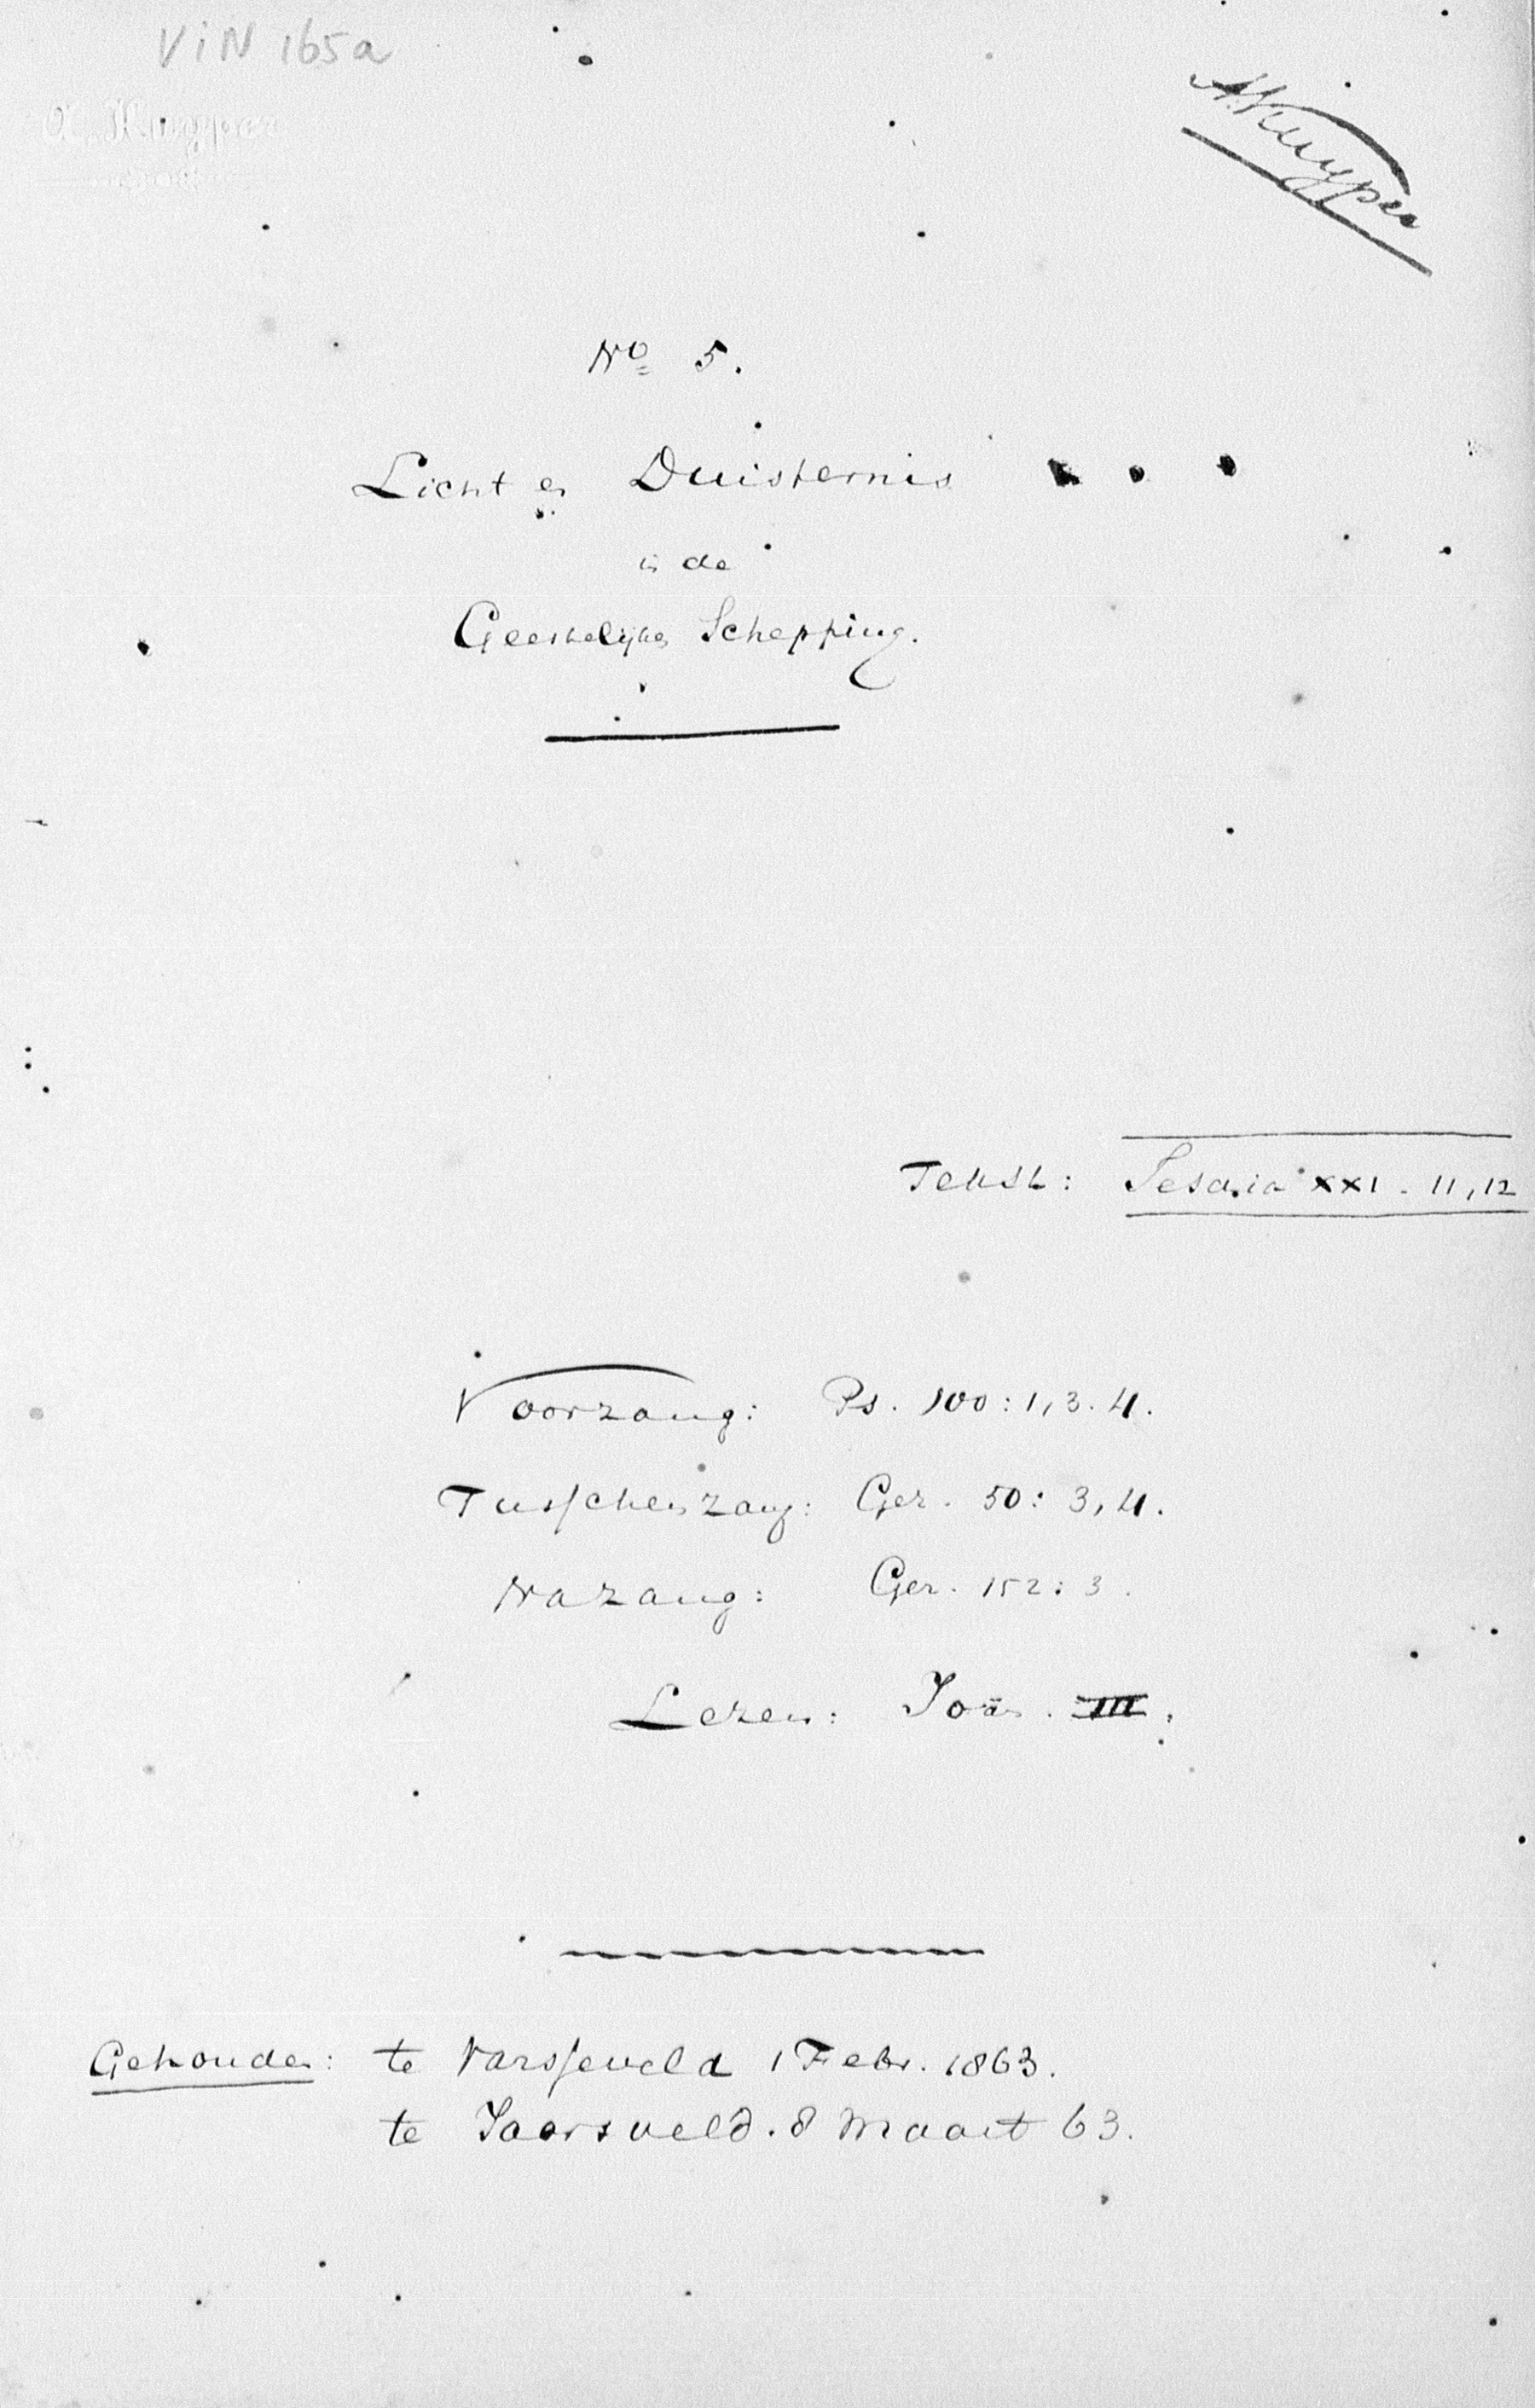 ViN 165a
A. Kuyper
A. Kuyper
No 5.
Licht en Duisternis
in de
Geestelijke Schepping.
Tekst: Jesaia XXI. 11,12
Voorzang: Ps. 100:1,3.4.
Tusschenzang: Gez. 50: 3,4.
Nazang: Gez. 152:3.
Lezen: Joan. III.
Gehouden: te Varsseveld 1 Febr. 1863.
te Jaarsveld. 8 Maart 63.